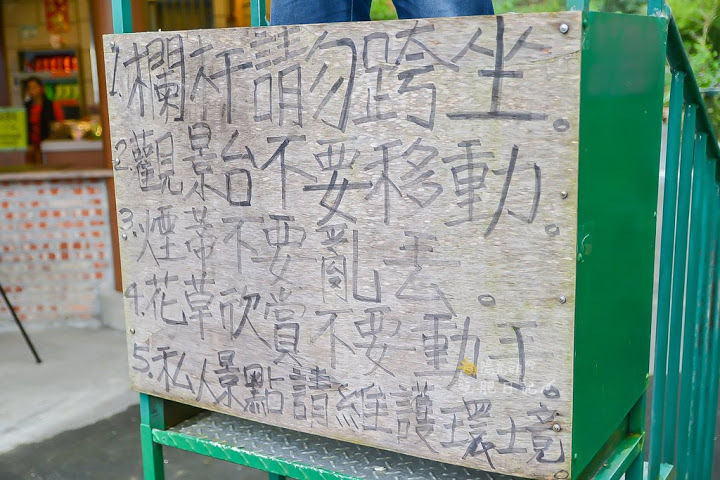 1.欄杆請勿跨坐。
2.觀景台不要移動。
3.煙蒂不要亂丟。
4.花草欣賞不要動手
5.私人景點請維護環境。